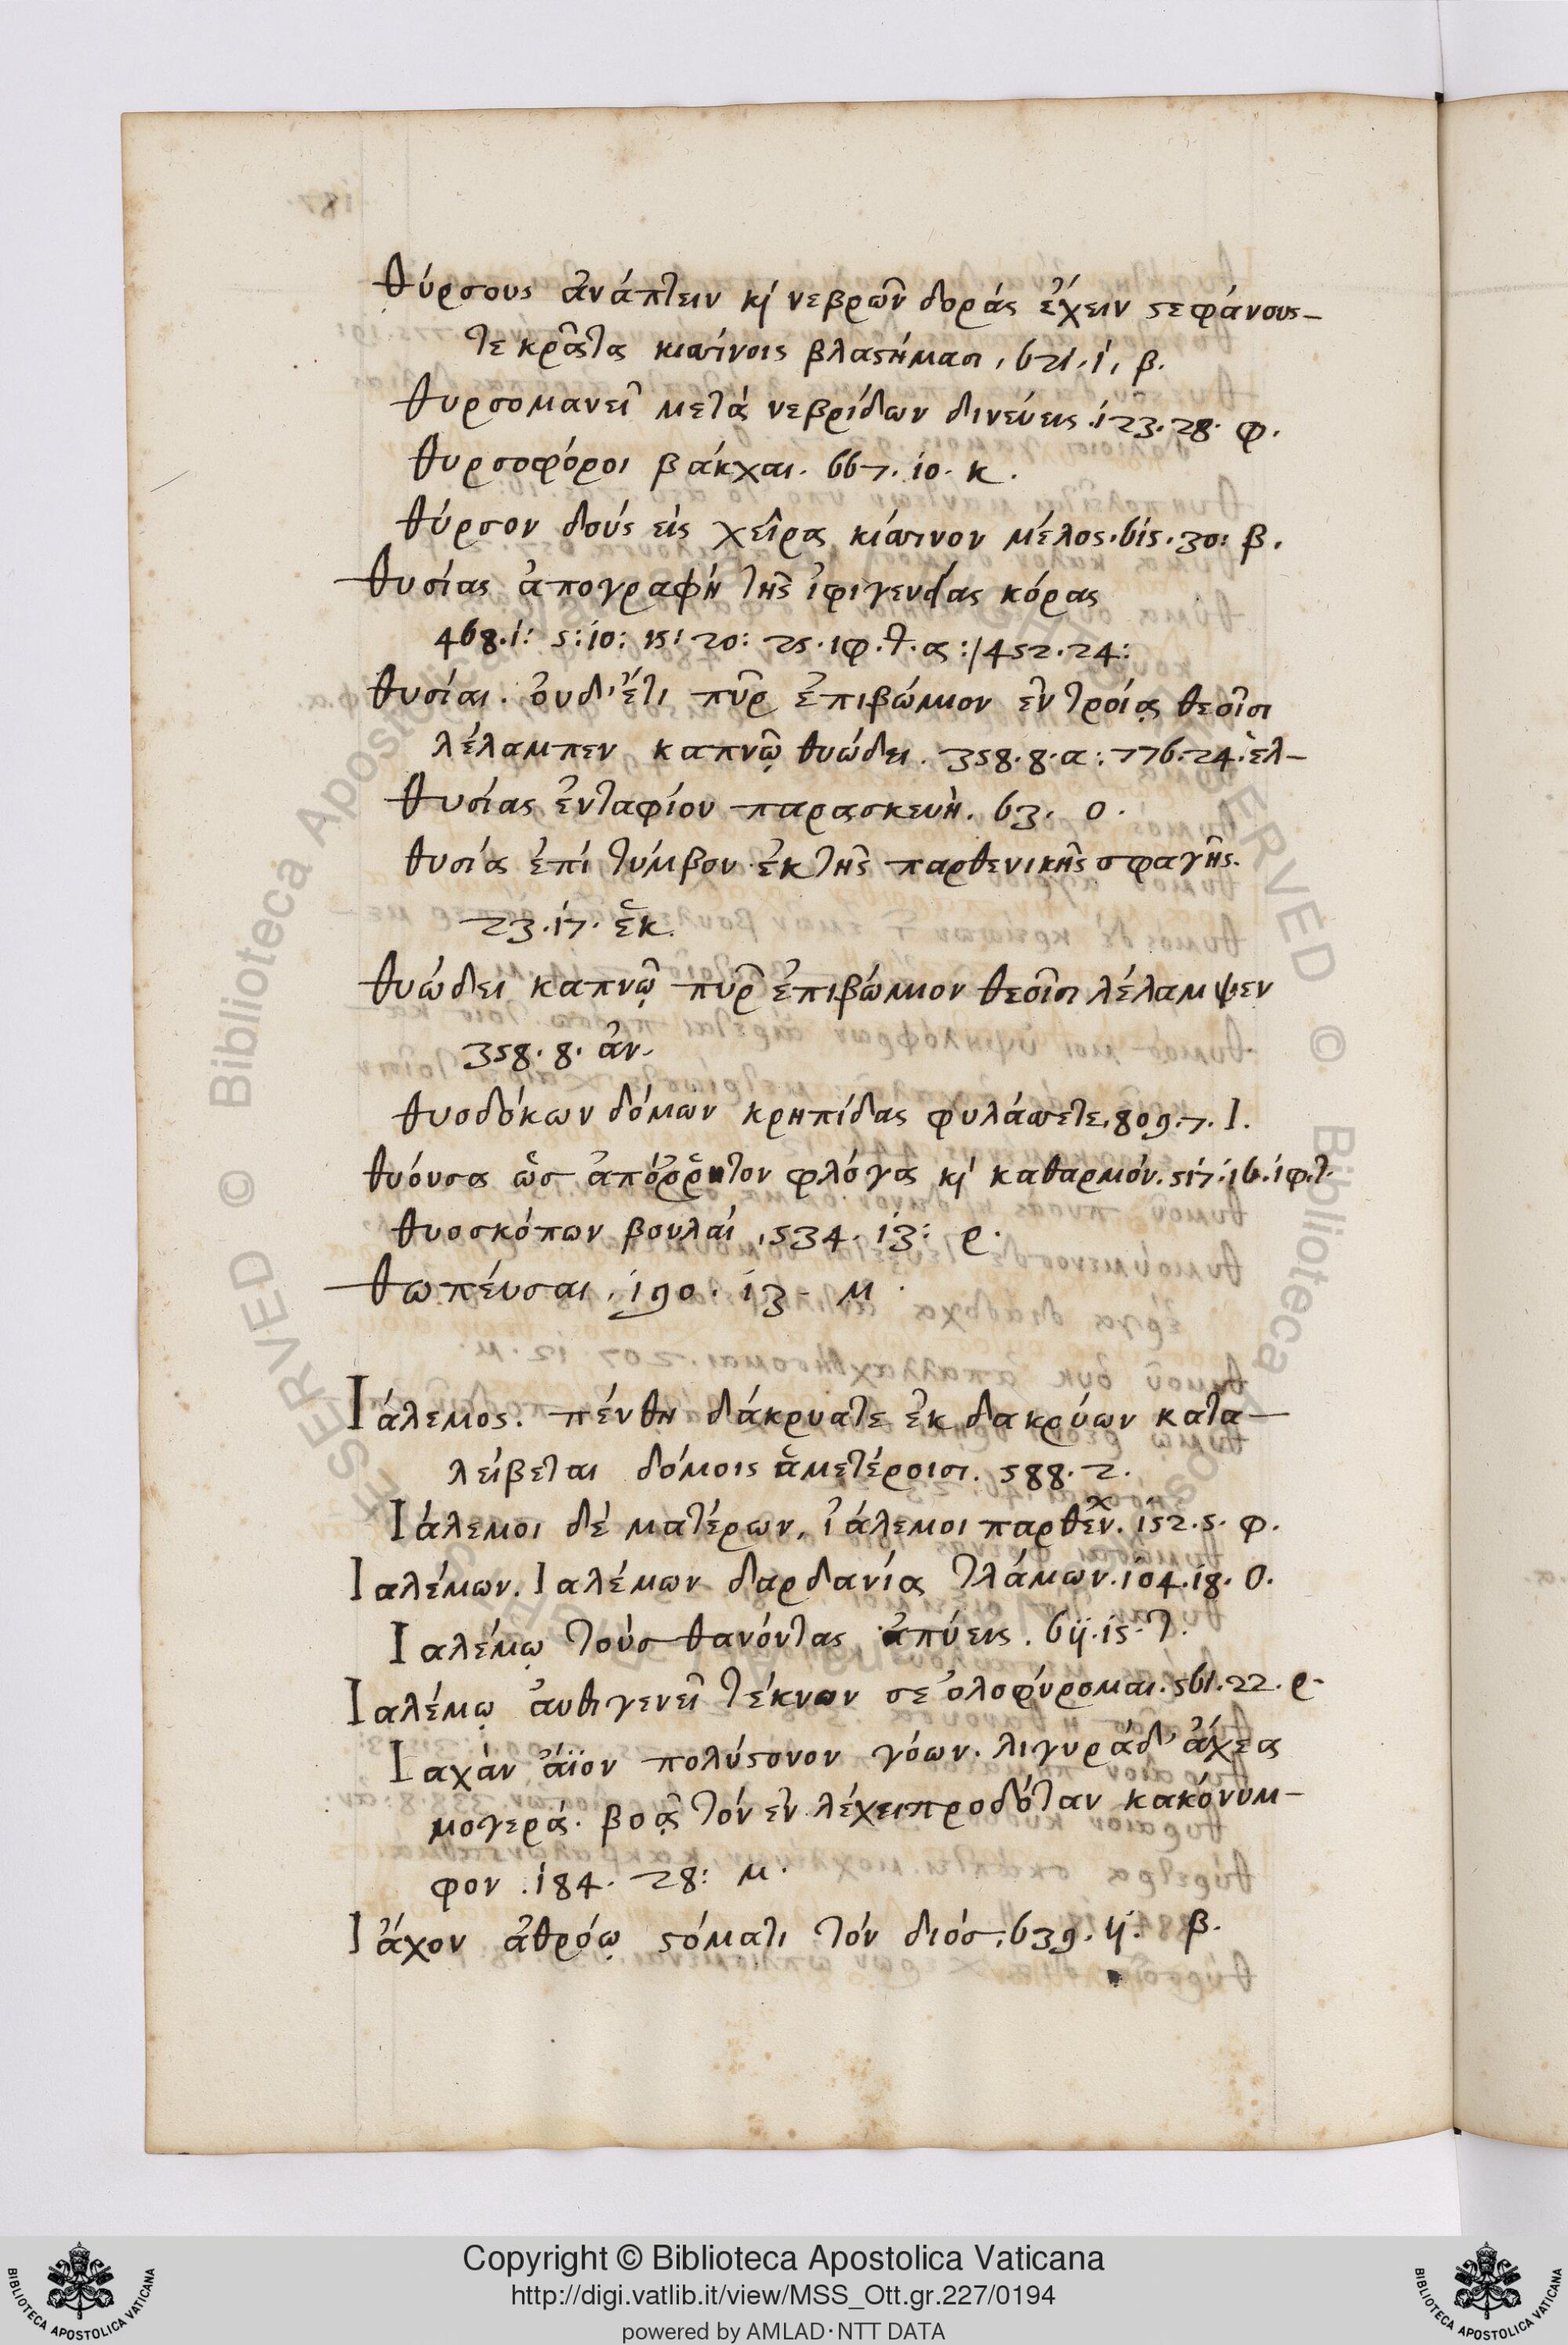 θύρσους ἀνάπτειν κὶ νεβρῶν δοράς ἔχειν ςεφάνους-
τε κρᾶτα κισσίνοις βλαςήμασι, 621.1, β.
θυρσομανεῖ μετὰ νεβρίδων δινεύεις. 123.28. φ.
θυρσοφόροι βάκχαι. 667. 10. κ.
θύρσον δούς εἰς χεῖρα κίσσινον μέλος. 615. 30: β.
θυσίας ἀπογραφή τῆς ἰφιγενείας κόρας
468.1: 5:10: 15: 20: 25. ιφ.τ.α:/452.24:
θυσίαι. ὀυδ' ἔτι πῦρ ἐπιβώμιον ἐν τροίᾳ θεοῖσι
λέλαμπεν καπνῷ θυώδει. 358.8.α: 776.24. ἑλ-
θυσίας ἐνταφίου παρασκευὴ. 63. ο.
θυσία ἐπί τύμβου ἐκ τῆς παρθενικῆς σφαγῆς.
23.17. ἑκ.
θυώδει καπνῷ πῦρ ἐπιβώμιον θεοῖσι λέλαμψεν
358. 8. ἀν.
θυοδόκων δόμων κρηπίδας φυλάσσετε. 809.7. Ι.
θυόυσα ὡσ ἀπόῤῥητον φλόγα κὶ καθαρμόν. 517. 16. ἰφ.τ.
θυοσκόπων βουλαί, 534. 13: ρ.
θωπέυσαι. 190. 13. μ.
Ιάλεμος. πένθη δάκρυατε ἐκ δακρύων κατα-
λείβεται δόμοις ἁμετέροισι. 588. 2.
Ιάλεμοι δέ ματέρων, ἰάλεμοι παρθέν. 152.5. φ.
Ιαλέμων. Ιαλέμων δαρδανία τλάμων. 104.18. ο.
Ιαλέμῳ τούσ θανόντας ἀπύεις. 611. 15. τ.
Ιαλέμῳ ἀυθιγενεῖ τέκνων σε ὀλοφύρομαι. 561.22. ρ.
Ιαχὰν ἄϊον πολύςονον γόων. λιγυράδ' ἄχεα
μογερά. βοᾷ τόν ἐν λέχει προδόταν κακόνυμ-
φον. 184. 28: μ.
Ιάχον ἀθρόῳ ςόματι τόν διόσ. 639. 11. β.
Copyright © Biblioteca Apostolica Vaticana
http://digi.vatlib.it/view/MSS_Ott.gr.227/0194
powered by AMLAD·NTT DATA